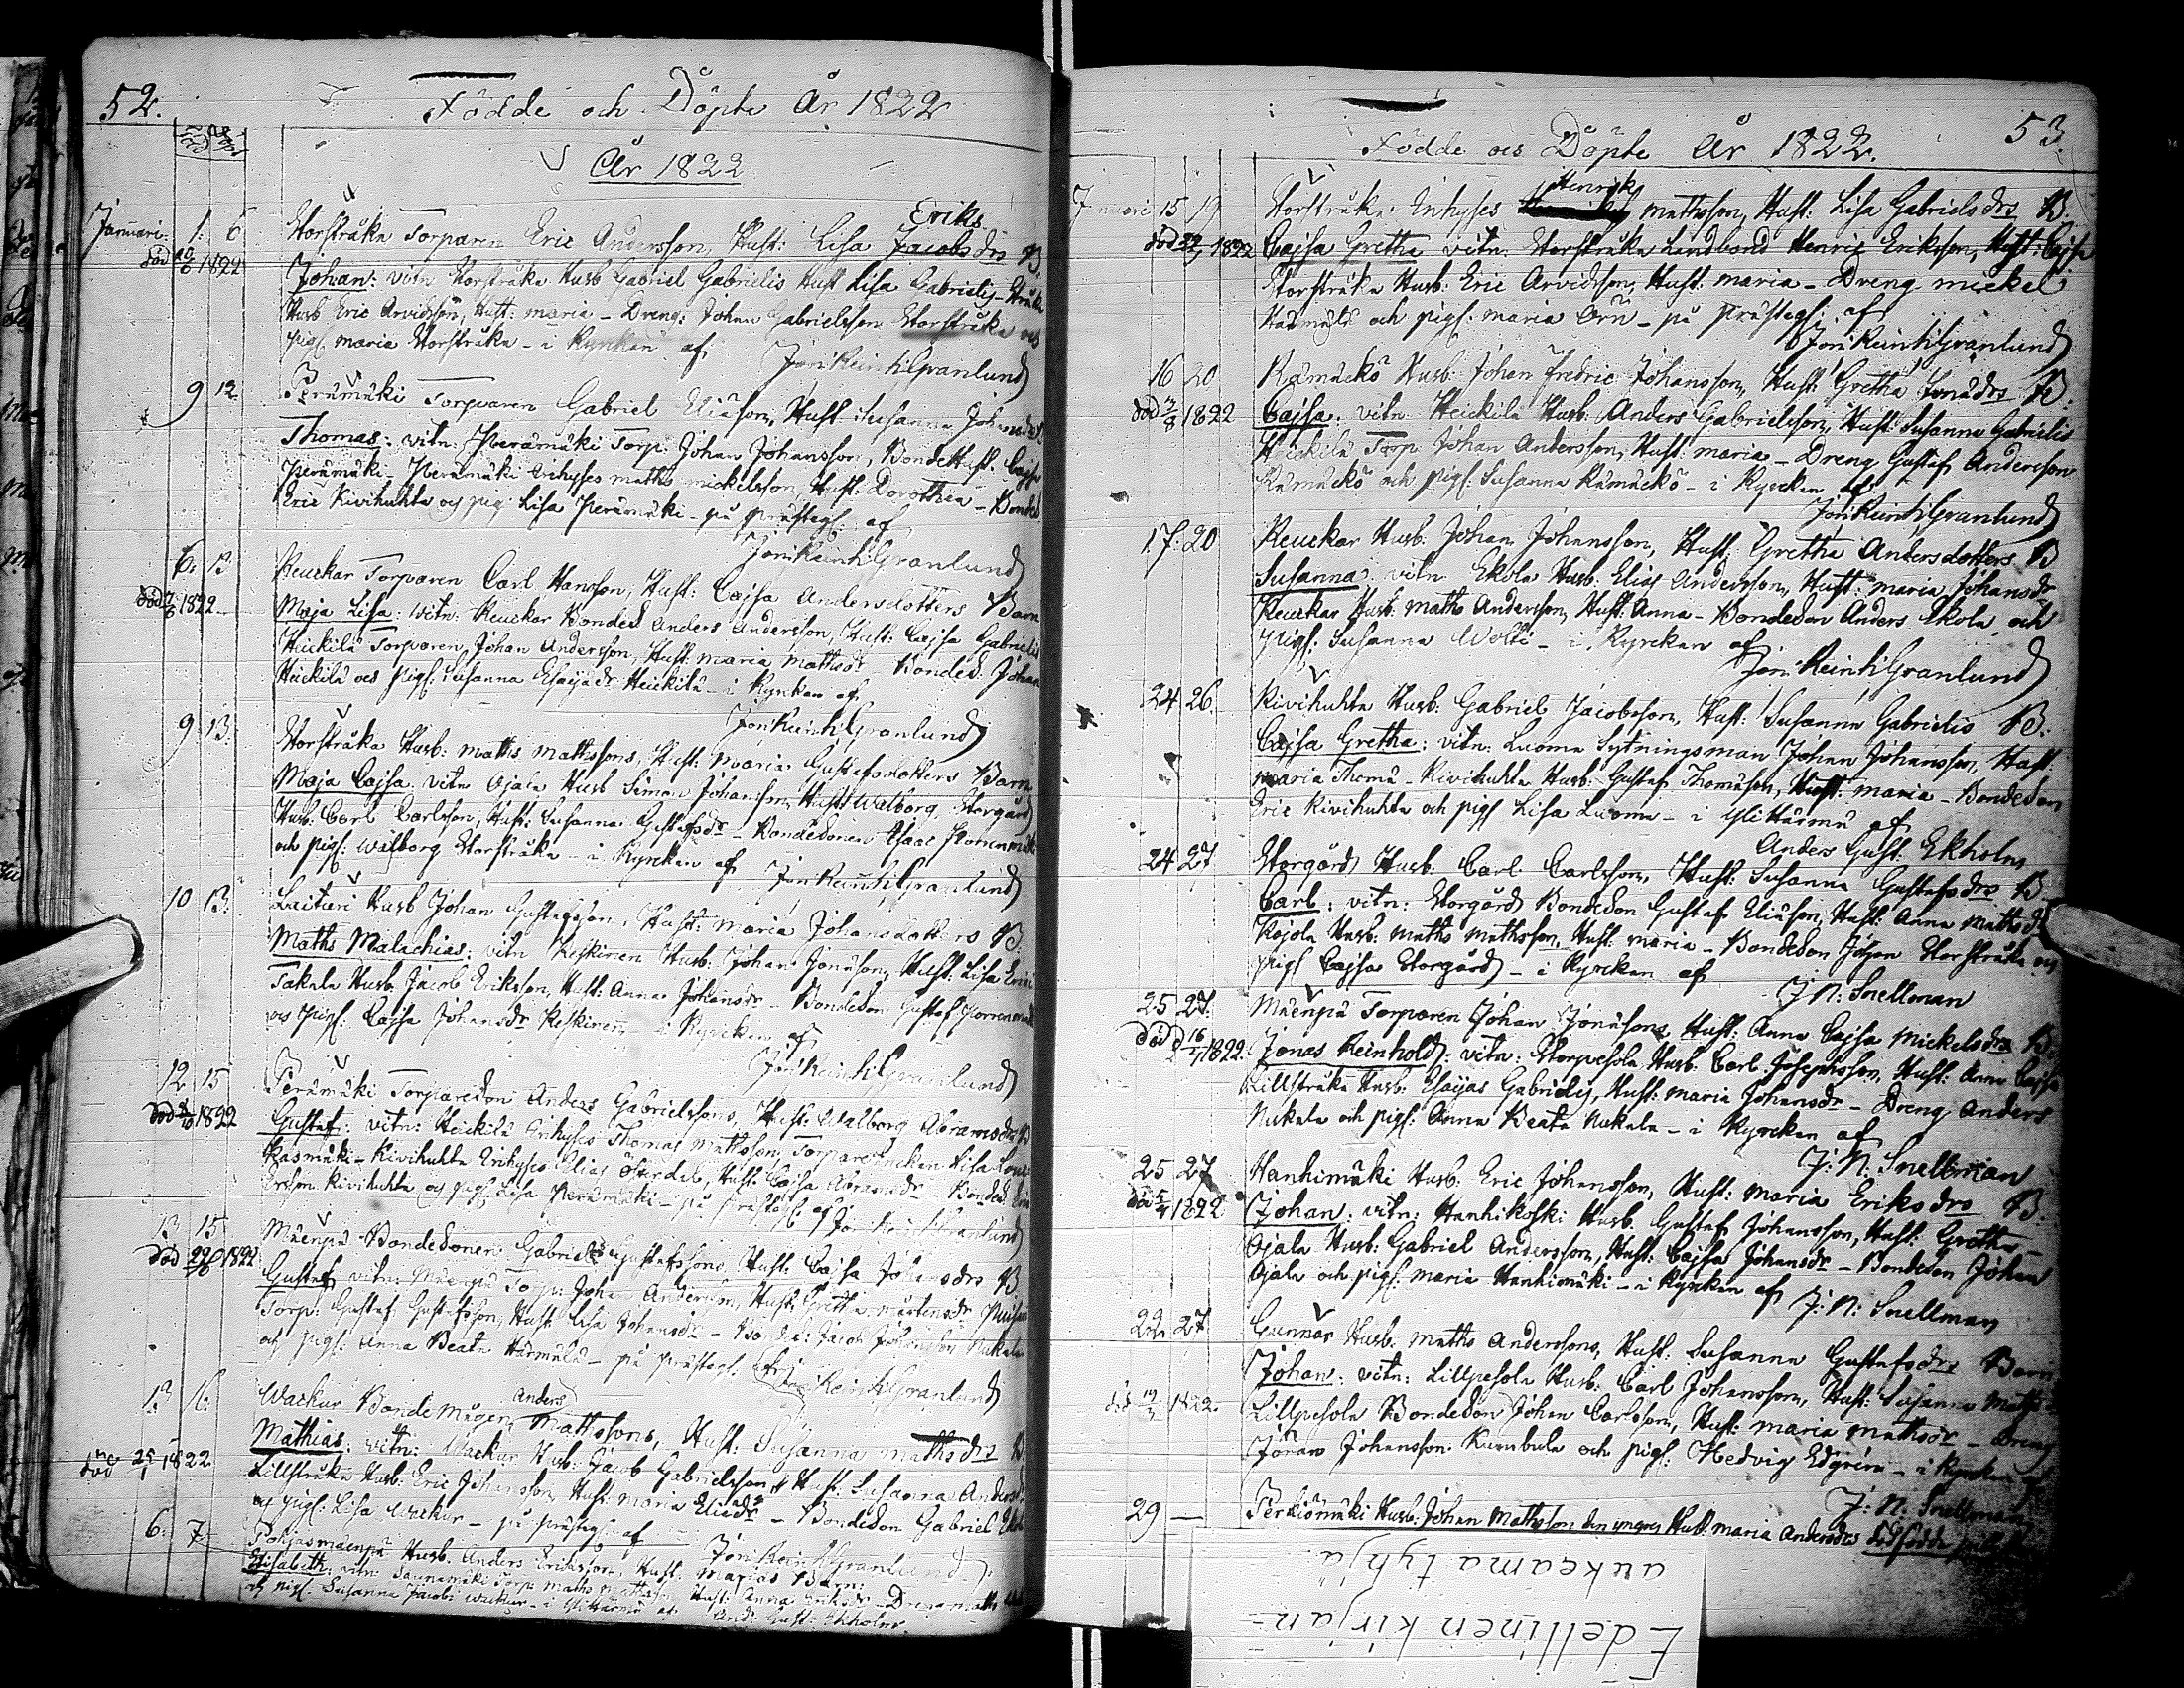 52.
Födde och Döpte År 1822
År 1822
Januari. 1. 6 Storstråka Torparen Eric Andersson, Hust: Lisa Jacobsdrs Eriks B.
död 1822 Johan: vitn Storstråka Husb Gabriel Gabrielis Hust Lisa Gabrielis
Husb Eric Arvidsson, Hust: maria - Dreng: Johan Gabrielsson Storstråka och
pig: maria Storstråka - i Kyrckan af
Jon: Reinh: Granlund
9 12 Perämäki Torparen Gabriel Eliäson, Hust: Susanna
Thomas: vitn: Perämäki Torp: Johan Johansson, Bondehust: Cajsa
Perämäki - Perämäki Inhyses maths mickelsson, Hust: Dorothea -
Eric Kivihuhta och pig: Lisa Perämäki - på prästeg: af
Jon: Reinh: Granlund
6. 13 Keuckar Torparen Carl Hansson, Hust: Cajsa Andersdotters Barn
död 1822 Maja Lisa: vitn: Keuckar Bondes Anders Andersson, Hust: Cajsa Gabrielis
Heickilä Torparen Johan Andersson, Hust: maria mathsdr Bondes. Johan
Heickilä och pig: Susanna Esaijædr Heickilä - i Kyrckan af
Jon: Reinh: Granlund
9 13. Storstråka Husb: maths mathssons, Hust: maria Gustafsdotters Barn
Maja Cajsa. vitn Ojala Husb Simon Johansson, Hust: Walborg, Storgård
Husb: Carl Carlsson, Hust: Susanna Gustafsdr - Bondedonen Isaac
och pig: Walborg Storstråka - i Kyrckan af
Jon: Reinh: Granlund
10 13. Laituri Husb Johan Gustafsson, Hust: maria Johansdotters B.
Maths Malachias: vitn Keskinen Husb: Johan Jonäson, Hust: Lisa
Takala Husb Jacob Eriksson, Hust: Anna Johansdr - Bondedon Gustaf
och pig: Cajsa Johansdr Keskinen i Kyrckan af
Jon: Reinh: Granlund
12 15 Perämäki Torparedon Anders Gabrielssons, Hust: Walborg Abramsdrs B
död 1822 Gustaf: vitn: Heickilä Inhyses Thomas mathsson, Torpareenckan Lisa
Kivihuhta Inhyses Elias Hust: Cajsa Abramsdr -
Kivihuhta och pig: Lisa Perämäki - på prästeg: af Jon: Reinh: Granlund
13 15 Mäenpä Bondedonen Gabriel Gustafssons, Hust: Cajsa Johansdrs B
död 1822 Gustaf vitn: Mäenpä Torp: Johan Hust: Gretha mårtensdr
Torp: Gustaf Gustafsson, Hust: Lisa Johansdr - Jacob Johansson Nukala
och pig: Anna Beata Härmälä - på prästeg: af
Jon: Reinh: Granlund
13 16. Wackur Bonde mågen Anders Mathssons, Hust: Susanna mathsdrs B.
död 25/1 1822 Mathias: vitn: Wackur Husb: Jacob Gabrielsson, Hust: Susanna
Lillstråka Husb: Eric Johansson, Hust: maria Eliædr - Bondedon Gabriel
och pig: Lisa Wackur - på prästeg: af
Jon: Reinh: Granlund
6. 7 Pohjasmäenpä Husb. Anders Eriksson, Hust: Marias Barn:
Elisabeth: vitn: Saunamäki Torp: maths Hust: Anna Eriksdr - Dreng maths
och pig: Susanna Jacobi Wackur - i Ylistarmo af And: Gust: Ekholm.
53.
Födde och Döpte År 1822.
Januari 15 19 Storstråka: Inhyses Henrik mathsson, Hust: Lisa Gabrielsdrs B.
död 1822 Cajsa Gretha vitn: Storstråka Landbond Henric Eriksson, Hust: Cajsa
Storstråka Husb: Eric Arvidsson, Hust: maria - Dreng mickel
Härmälä och pig: maria Örn - på prästeg: af
Jon: Reinh: Granlund
16 20 Rämäckö Husb: Johan Fredric Johansson, Hust: Gretha Jonædrs B:
död 1822 Cajsa: vitn Heickilä Husb: Anders Gabrielsson, Hust: Susanna Gabrielis
Heickilä Torp: Johan Andersson, Hust: maria - Dreng Gustaf Andersson
Rämäckö och pig: Susanna Rämäckö - i Kyrckan af
Jon: Reinh: Granlund
17. 20 Keuckar Husb: Johan Johansson, Hust: Gretha Andersdotters B
Susanna: vitn Ekola Husb: Elias Andersson, Hust: maria Johansdr
Keuckar Husb. maths Andersson, Hust: Anna - Bondedon Anders Ekola och
pig: Susanna Wolti - i Kyrckan af
Jon: Reinh: Granlund
24 26. Kivihuhta Husb: Gabriel Jacobsson, Hust: Susanna Gabrielis B.
Cajsa Gretha: vitn: Luoma Sytningsman Johan Johansson, Hust
maria Thomä - Kivihuhta Husb: Gustaf Thomäson, Hust: maria - Bondedon
Eric Kivihuhta och pig Lisa Luoma - i Ylistarmo af
Anders Gust: Ekholm
24 27 Storgård Husb: Carl Carlsson, Hust: Susanna Gustafsdrs B
Carl: vitn: Storgård Bondedon Gustaf Eliäson, Hust: Anna mathsdr
Kojola Husb: maths mathsson, Hust: maria - Bondedon Johan Storstråka och
pig Cajsa Storgård - i Kyrckan af
J N: Snellman
25 27. Mäenpä Torparen Johan Jonäsons, Hust: Anna Cajsa Mickelsdrs B
död 1822. Jonas Reinhold: vitn: Storpesola Husb: Carl Josephsson, Hust: Anna Cajsa
Lillstråka Husb: Esaijas Gabrielis, Hust: maria Johansdr - Dreng Anders
Nukala och pig: Anna Beata Nukala - i Kyrckan af
J: N: Snellman
25 27 Hanhimäki Husb: Eric Johansson, Hust: maria Eriksdrs B.
död 1822 Johan: vitn: Hanhikoski Husb. Gustaf Johansson, Hust: Gretha
Ojala Husb: Gabriel Andersson, Hust: Cajsa Johansdr - Bondedon Johan
Ojala och pig: maria Hanhimäki - i Kyrckan af J: N: Snellman
22 27 Gunnar Husb. maths Anderssons, Hust: Susanna Gustafsdrs Barn
Johan: vitn: Lillpesola Husb: Carl Johansson, Hust: Susanna
död 1822. Lillpesola Bondedon Johan Carlsson, Hust: maria mathsdr - Dreng
Johan Johansson Kumbula och pig: Hedvig Edgrén - i Kyrckan af
J: N: Snellman
29 — Perkiömäki Husb: Johan Mathsson den yngres Hust: maria Andersdrs
Edellinen kirjan-
aukeama tyhjä.